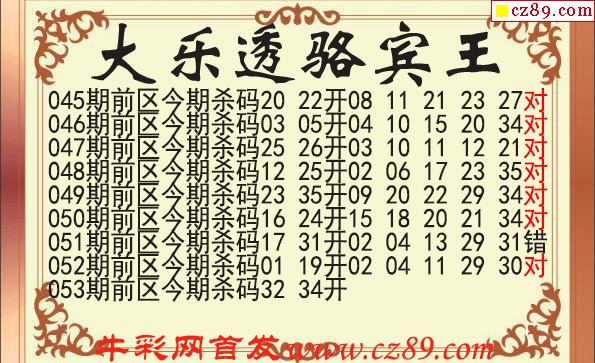 cz89.com
大乐透骆宾王
045期前区今期杀码20 22开08 11 21 23 27对
046期前区今期杀码03 05开04 10 15 20 34对
047期前区今期杀码25 26开03 10 11 12 21对
048期前区今期杀码12 25开02 06 17 23 35对
049期前区今期杀码23 35开09 20 22 29 34对
050期前区今期杀码16 24开15 18 20 21 34对
051期前区今期杀码17 31开02 04 13 29 31错
052期前区今期杀码01 19开02 04 11 29 30对
053期前区今期杀码32 34开
牛彩网首发www.cz89.com